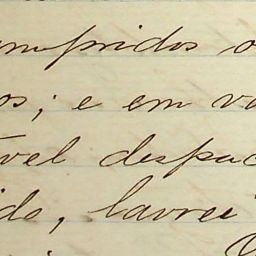 umpridos o
os; e em v
ável despac
ido, lavrei